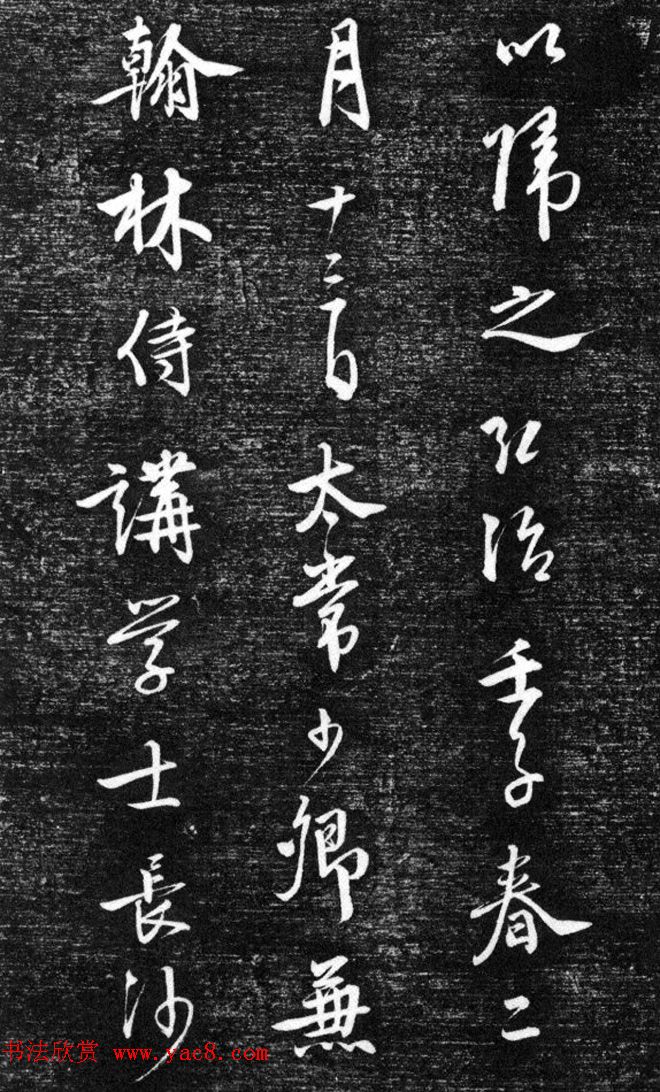 以歸之弘治壬子春二
月十二日太常少卿兼
翰林侍講学士長沙
书法欣赏 www.yac8.com